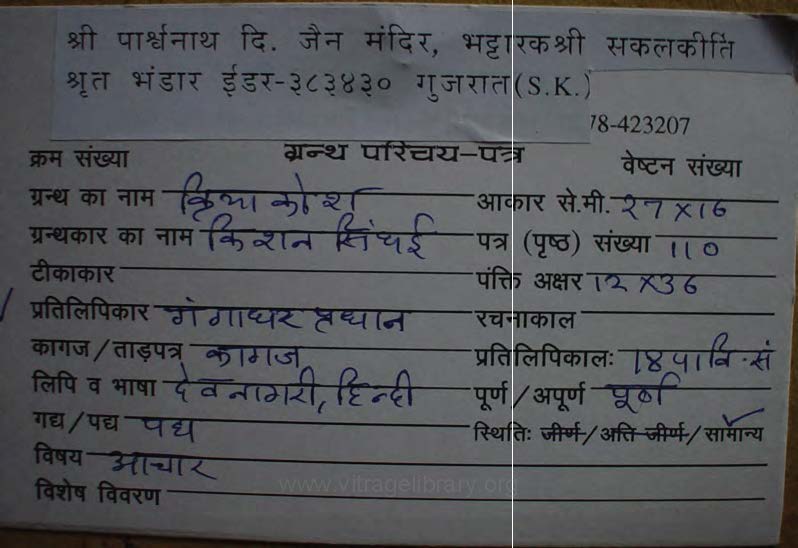 श्री पार्श्वनाथ दि. जैन मंदिर, भट्टारकश्री सकलकीर्ति
श्रृत भंडार ईडर-३८३४३० गुजरात(S.K.)
78-423207
क्रम संख्या ग्रन्थ परिचय-पत्र वेष्टन संख्या
ग्रन्थ का नाम क्रिया कोश आकार से.मी. २7 x 16
ग्रन्थकार का नाम किशन सिंघई पत्र (पृष्ठ) संख्या 110
टीकाकार पंक्ति अक्षर 1२ x 36
प्रतिलिपिकार गंगाधर प्रधान रचनाकाल
कागज/ताड़पत्र कागज प्रतिलिपिकालः वि.सं
लिपि व भाषा देवनागरी, हिन्दी पूर्ण/अपूर्ण पूर्ण
गद्य/पद्य पद्य स्थितिः जीर्ण/अति जीर्ण/सामान्य
विषय आचार
विशेष विवरण
www.vitragelibrary.org